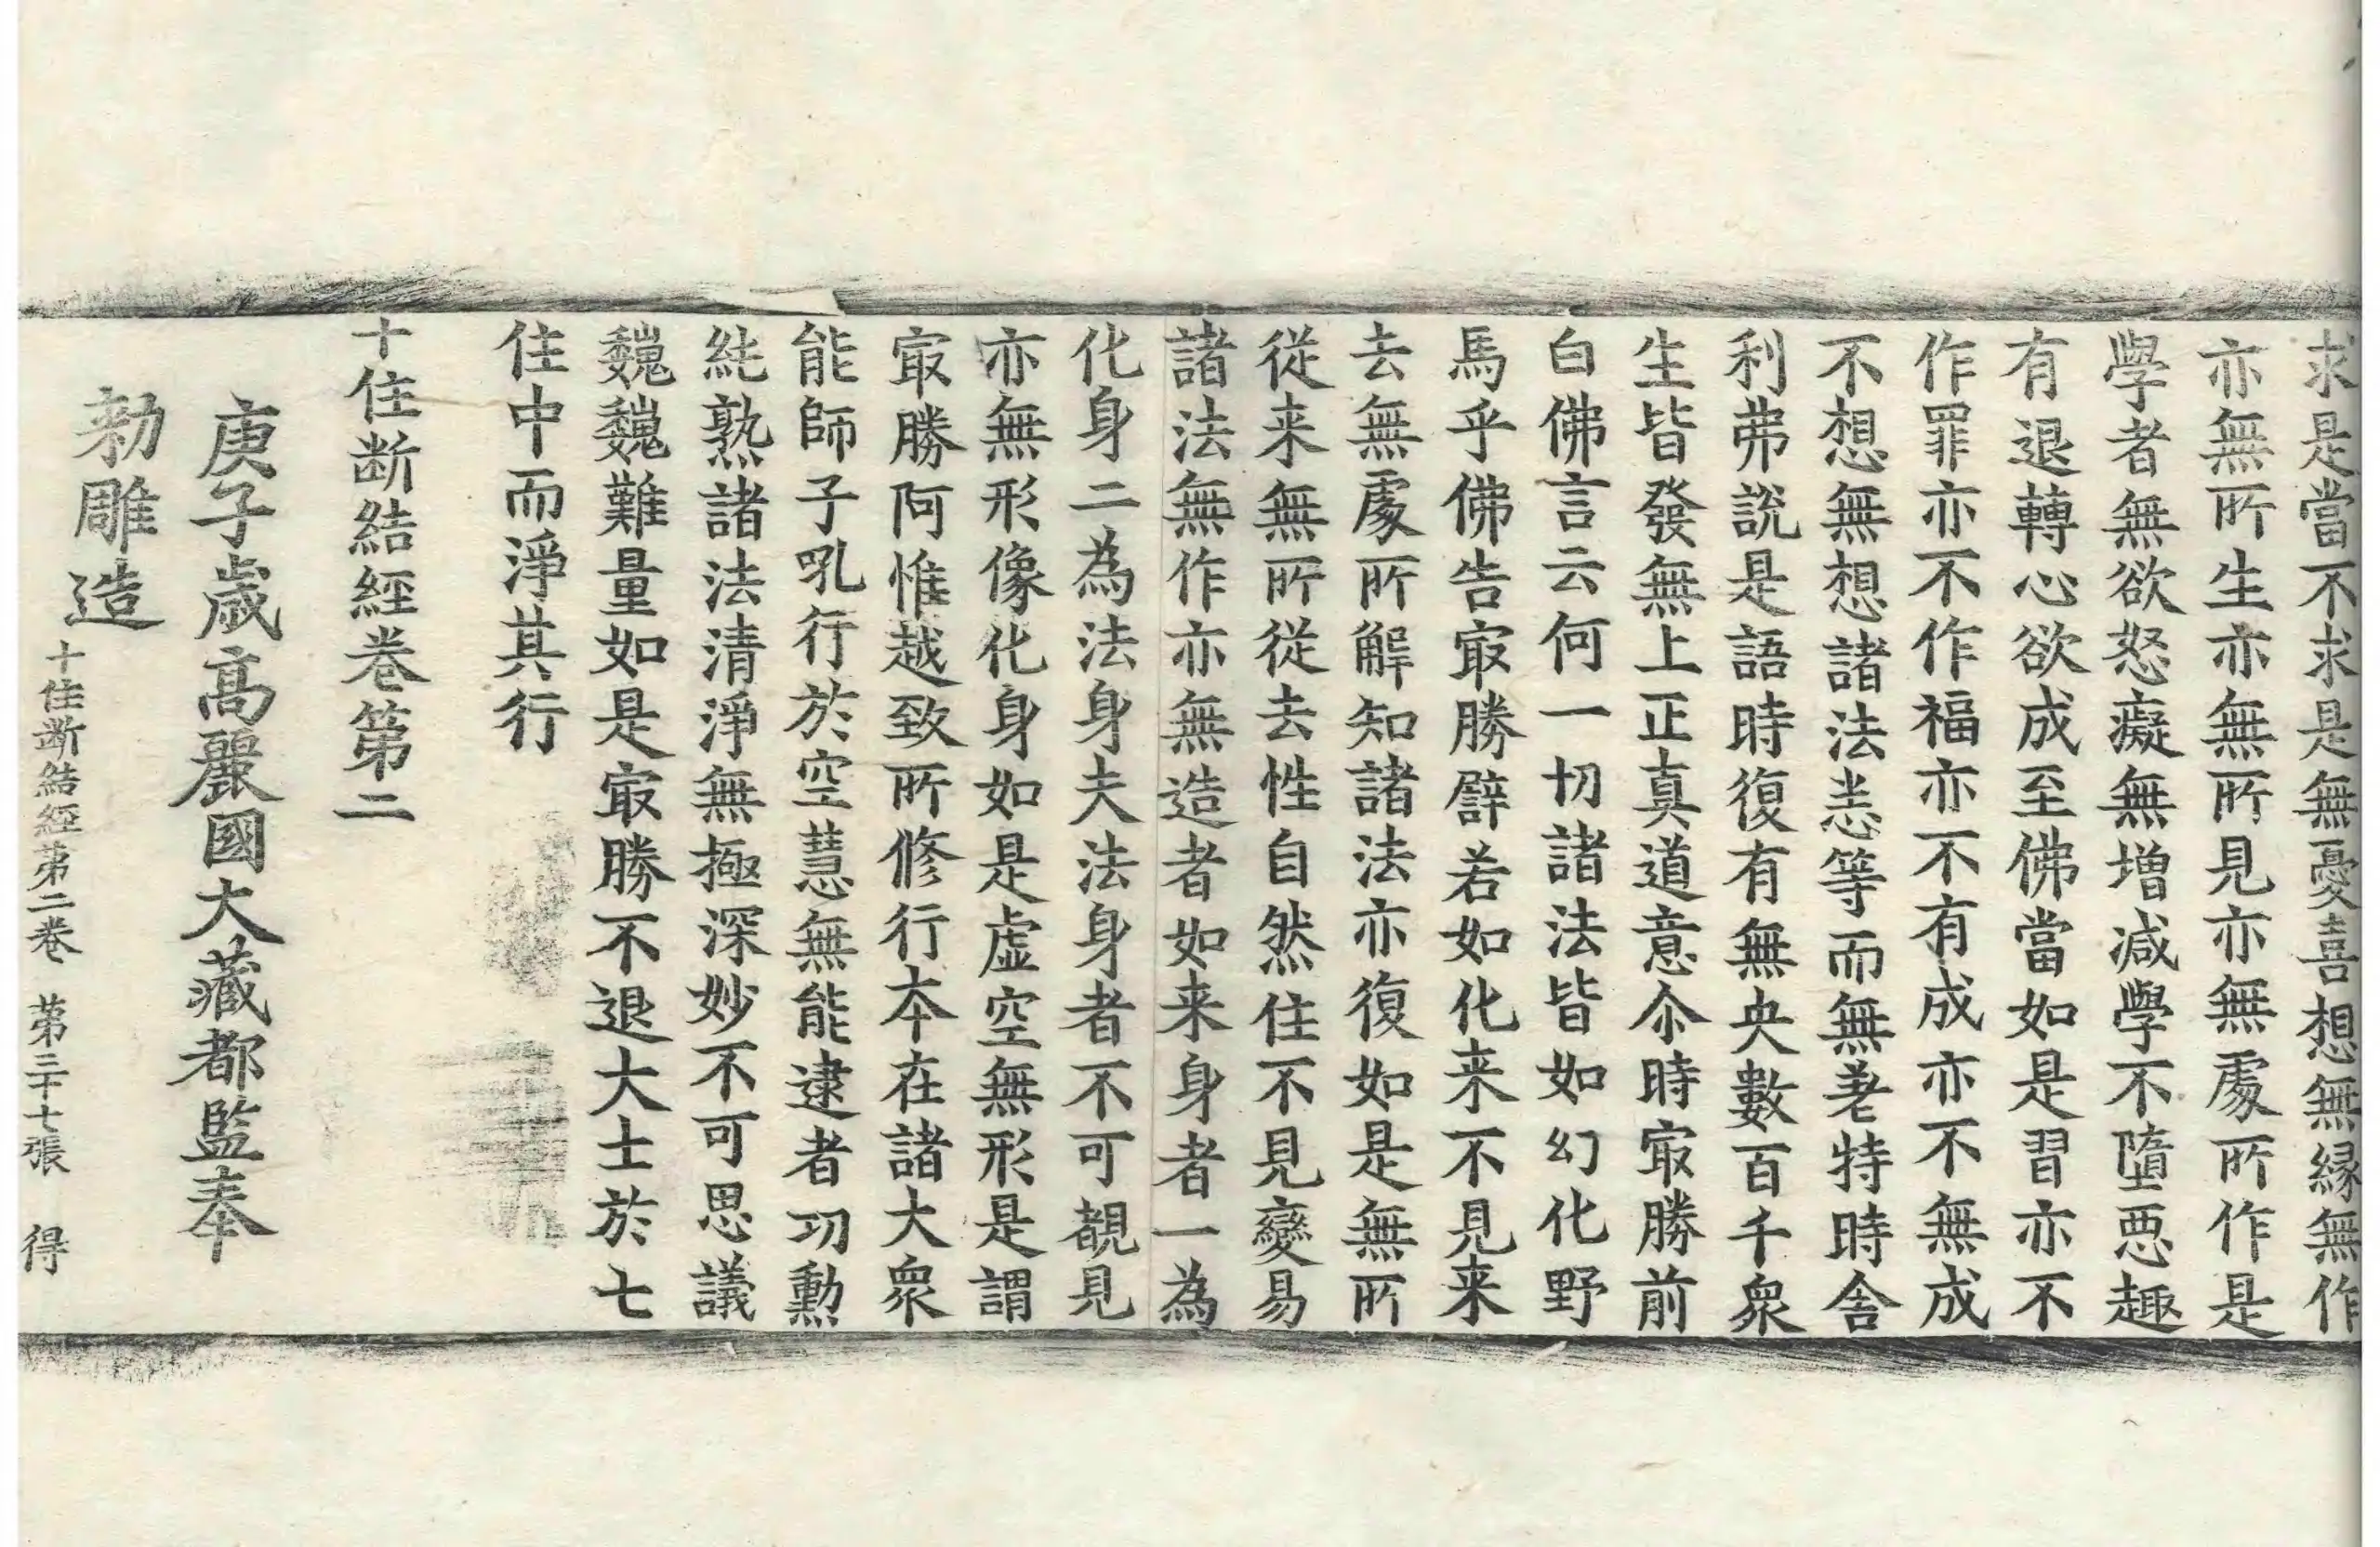 求是當不求是無憂喜想無縁無作
亦無所生亦無所見亦無處所作是
學者無欲怒癡無増減學不墮惡趣
有退轉心欲成至佛當如是習亦不
作罪亦不作福亦不有成亦不無成
不想無想諸法恙等而無著特時舎
利弗說是語時復有無央數百千衆
生皆發無上正真道意尒時㝡勝前
白佛言云何一切諸法皆如幻化野
馬乎佛告㝡勝譬若如化来不見来
去無處所解知諸法亦復如是無所
從来無所從去性自然住不見變易
諸法無作亦無造者如来身者一為
化身二為法身夫法身者不可覩見
亦無形像化身如是虚空無形是謂
㝡勝阿惟越致所修行本在諸大衆
能師子吼行於空慧無能逮者功勳
純熟諸法清淨無極深妙不可思議
巍巍難量如是㝡勝不退大士於七
住中而淨其行
十住断結經卷第二
庚子歳高麗國大藏都監奉
勑雕造
十住断結經第二卷 第三十七張 得